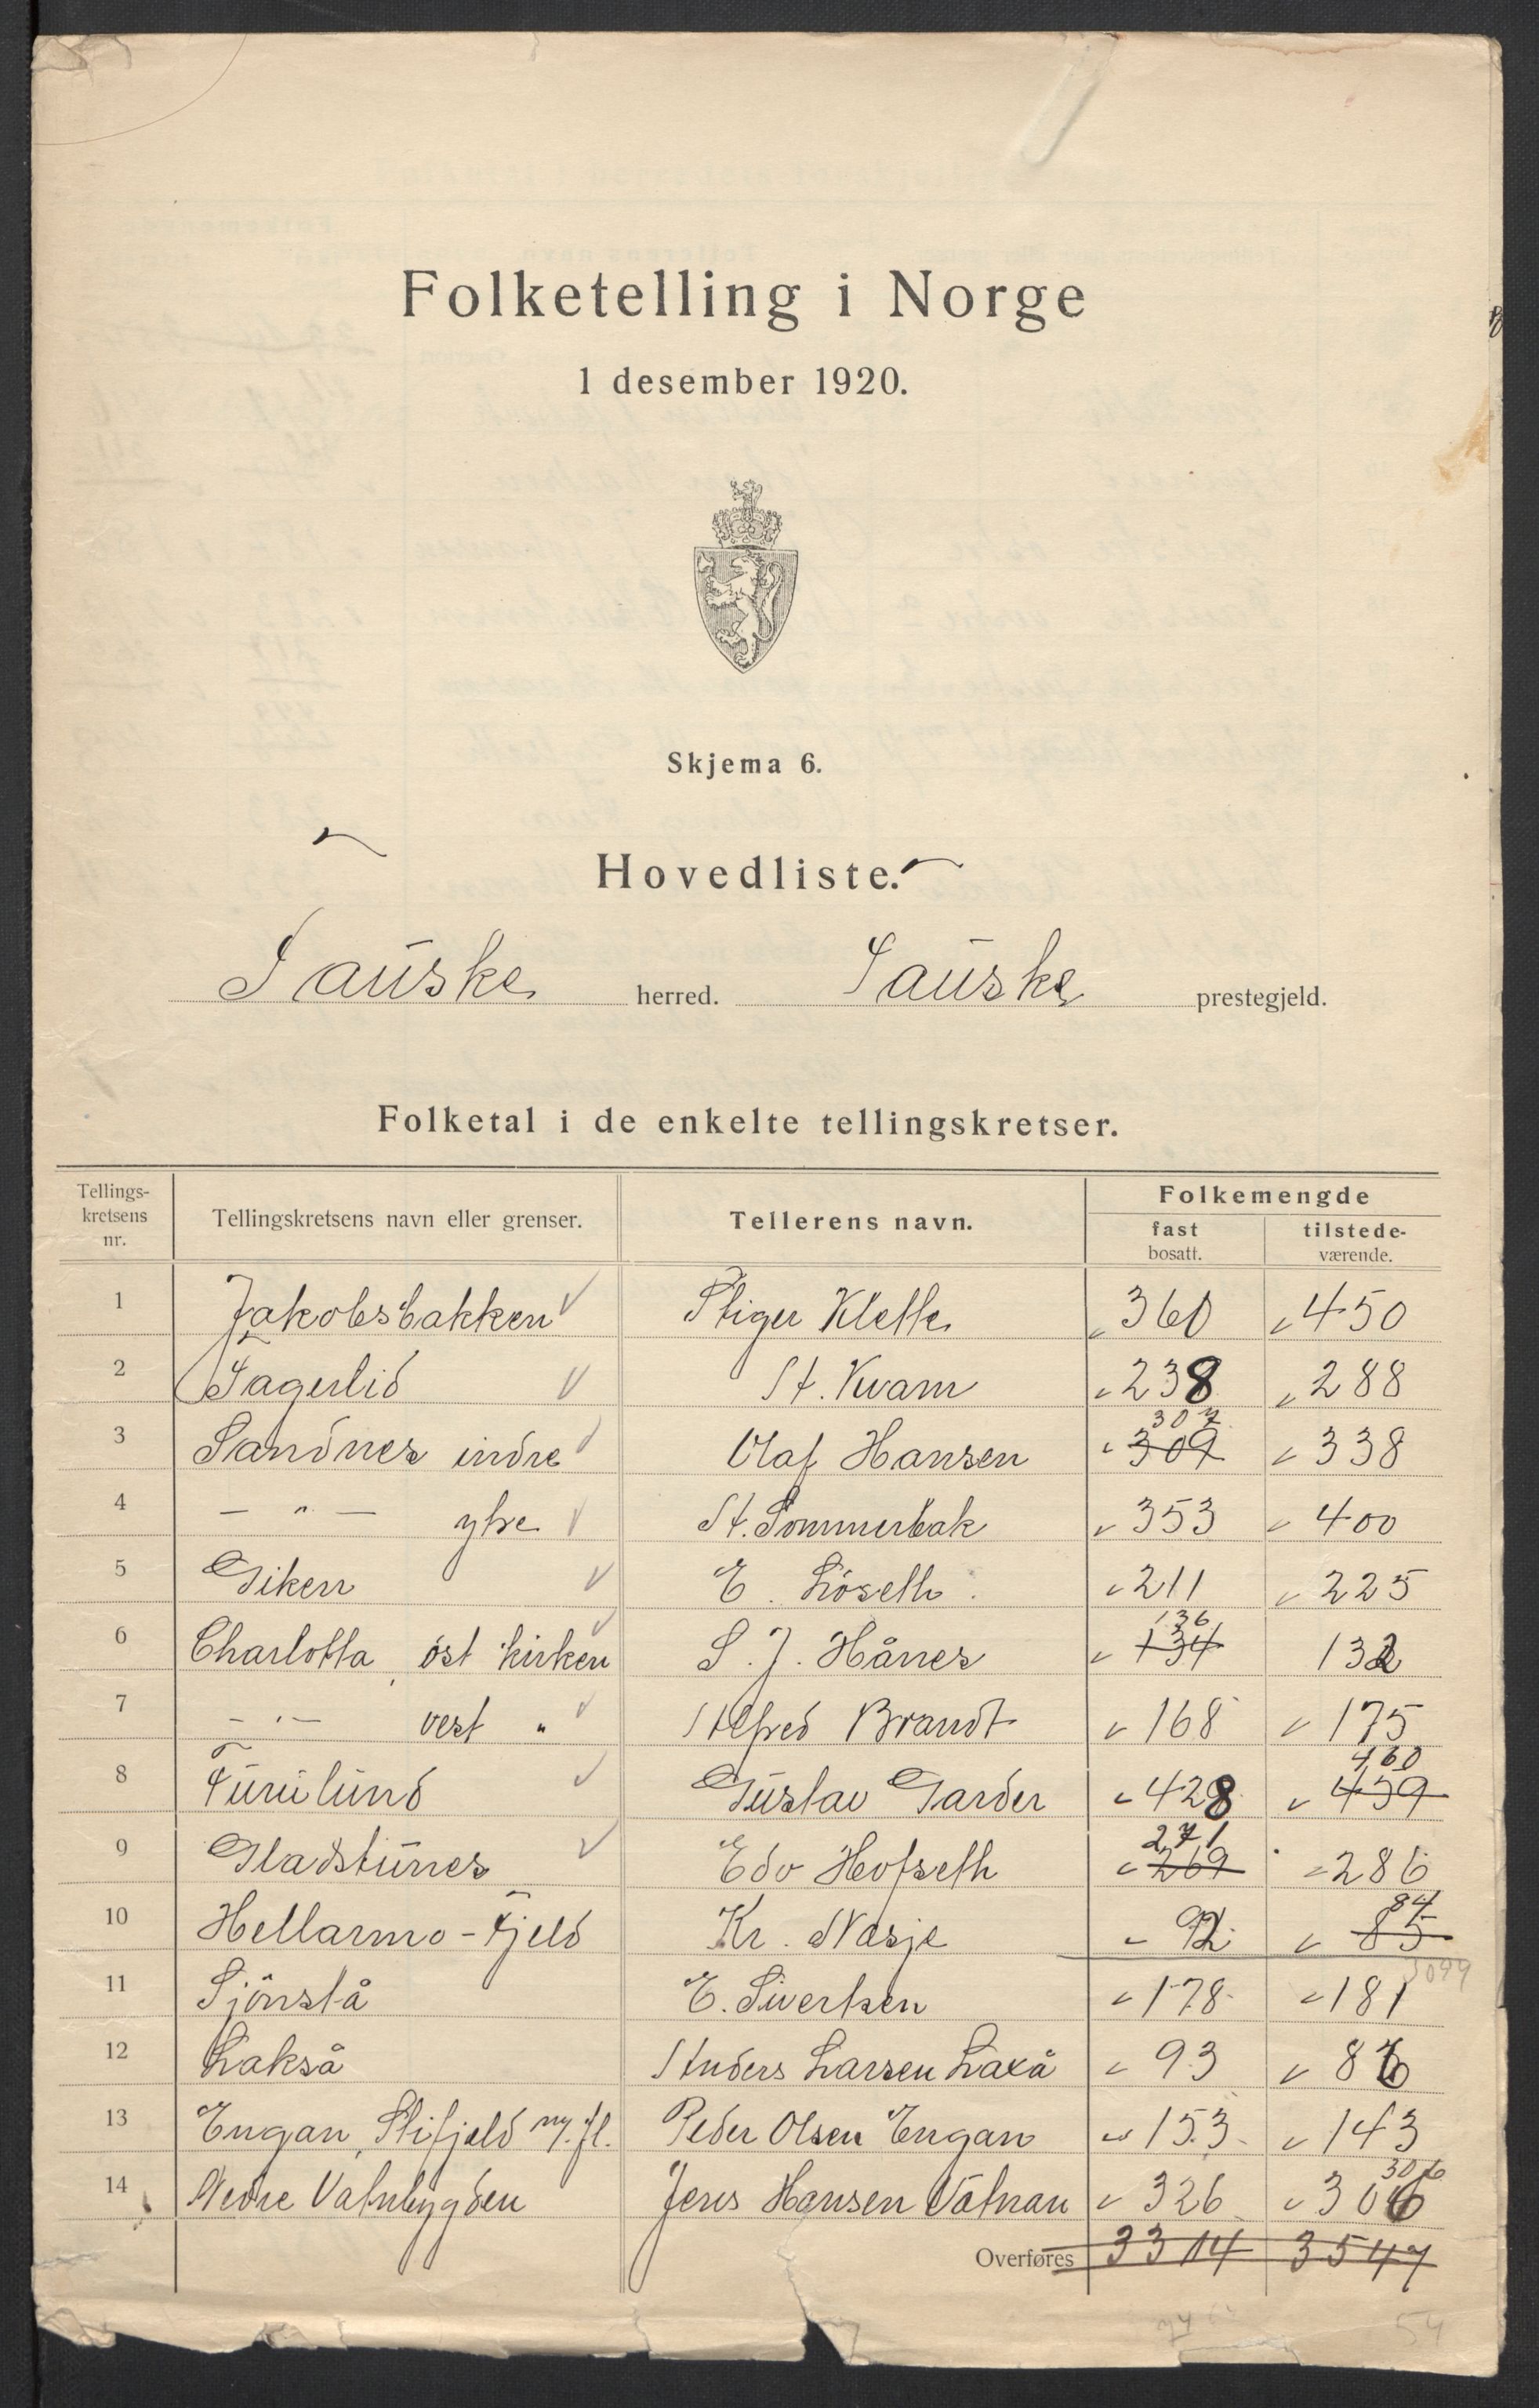 Folketelling i Norge
1 desember 1920.
Skjema 6.
Hovedliste.
Fauske herred. Fauske prestegjeld.
Folketal i de enkelte tellingskretser.
Tellings-kretsens nr. Tellingskretsens navn eller grenser. Tellerens navn. Folkemengde
fast bosatt. tilstede-værende.
1 Jakobsbakken Klette 360 450
2 Fagerlid A. Kvam 238 288
307
3 Sandnes indre Olaf Hansen 309 338
4 — " — ytre A. Sommerbak 353 400
5 Giken E. Løseth 211 225
136
6 Charlotta, øst kirken S. J. Hånes 134 132
7 — " — vest " Alfred Brandt 168 175
460
8 Furulund Gustav Garder 428 459
271
9 Gladstunes Edv Hofseth 269 286
84
10 Hellarmo - Fjeld Kr. Nasje 92 85
3099
11 Sjønstå E. Sivertsen 178 181
12 Lakså Anders Larsen Laxå 93 86
13 Engan, Stifjeld m. fl. Peder Olsen Engan 153 143
306
14 Nedre Vatnbygden Jens Hansen Vatnan 326 306
Overføres 3314 3547
54